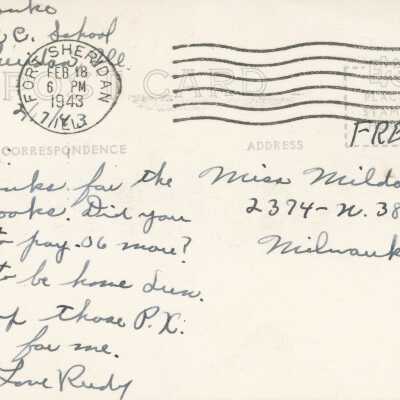 C. School
FORT SHERIDAN
FEB 18
6 PM
1943
ILL.
POST CARD
PLACE
STAMP
FRE
CORRESPONDENCE
ADDRESS
nks for the
ooks. Did you
to pay .06 more?
to be home Sun.
up those P.X.
for me.
Love Rudy
Miss Mild
2374-N. 38
Milwauk